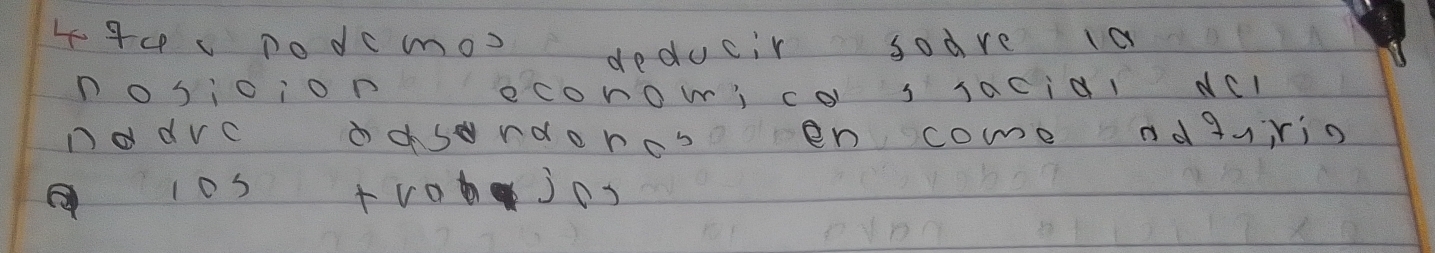 4 que podemos deducir sobre la
posicion economica y social del
padre basandonos en como adquirio
a los trabajos